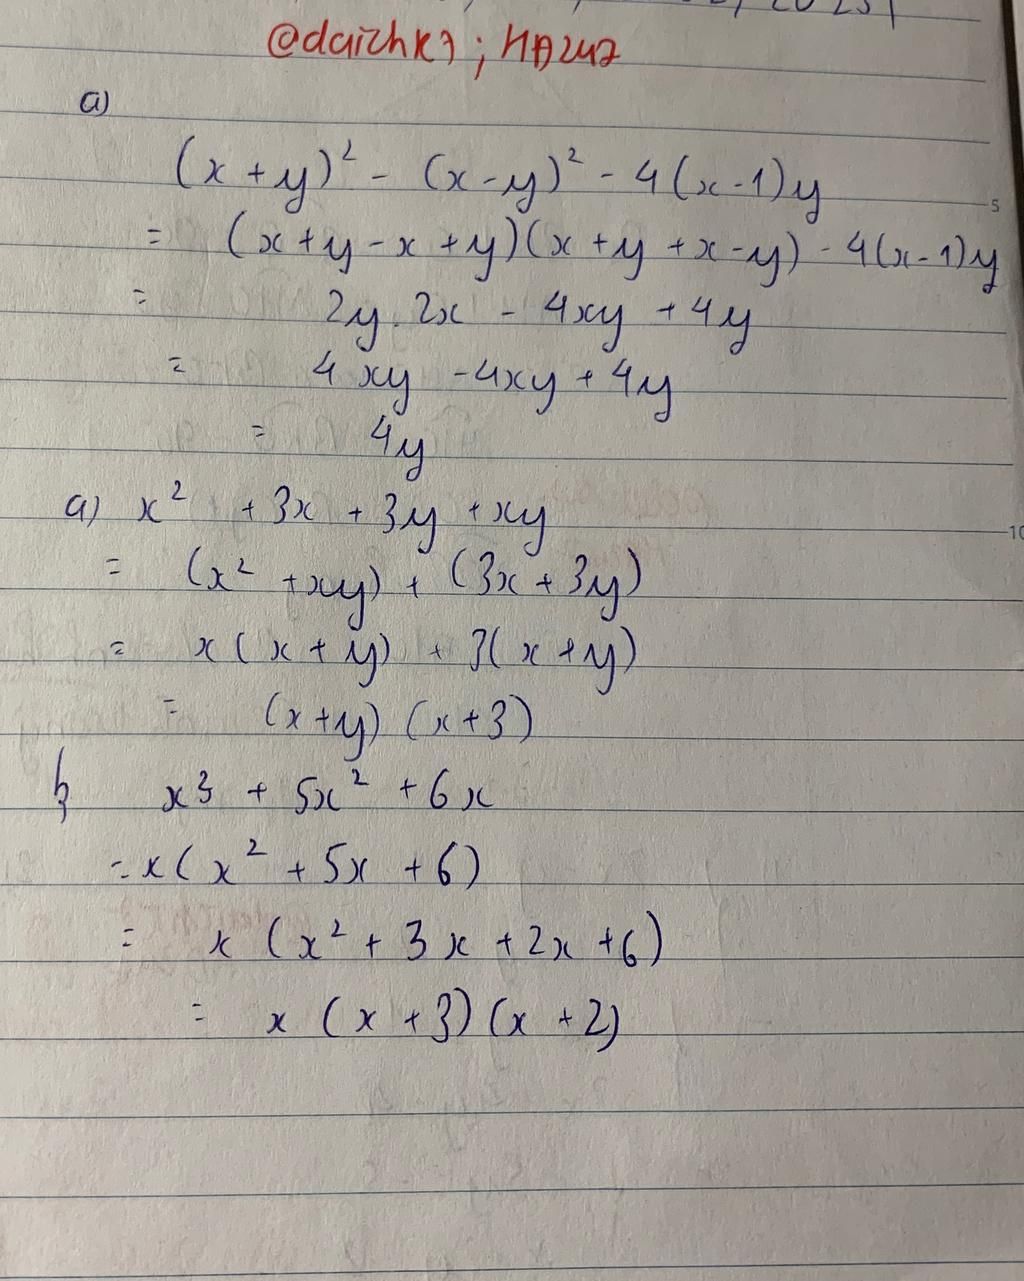 @daizhk7 ; HA247
a)
(x + y)² - (x - y)² - 4(x - 1)y
= (x + y - x + y)(x + y + x - y) - 4(x - 1)y
= 2y . 2x - 4xy + 4y
= 4xy - 4xy + 4y
= 4y
a) x² + 3x + 3y + xy
= (x² + xy) + (3x + 3y)
= x(x + y) + 3(x + y)
= (x + y)(x + 3)
b, x³ + 5x² + 6x
= x(x² + 5x + 6)
= x(x² + 3x + 2x + 6)
= x(x + 3)(x + 2)
5
10